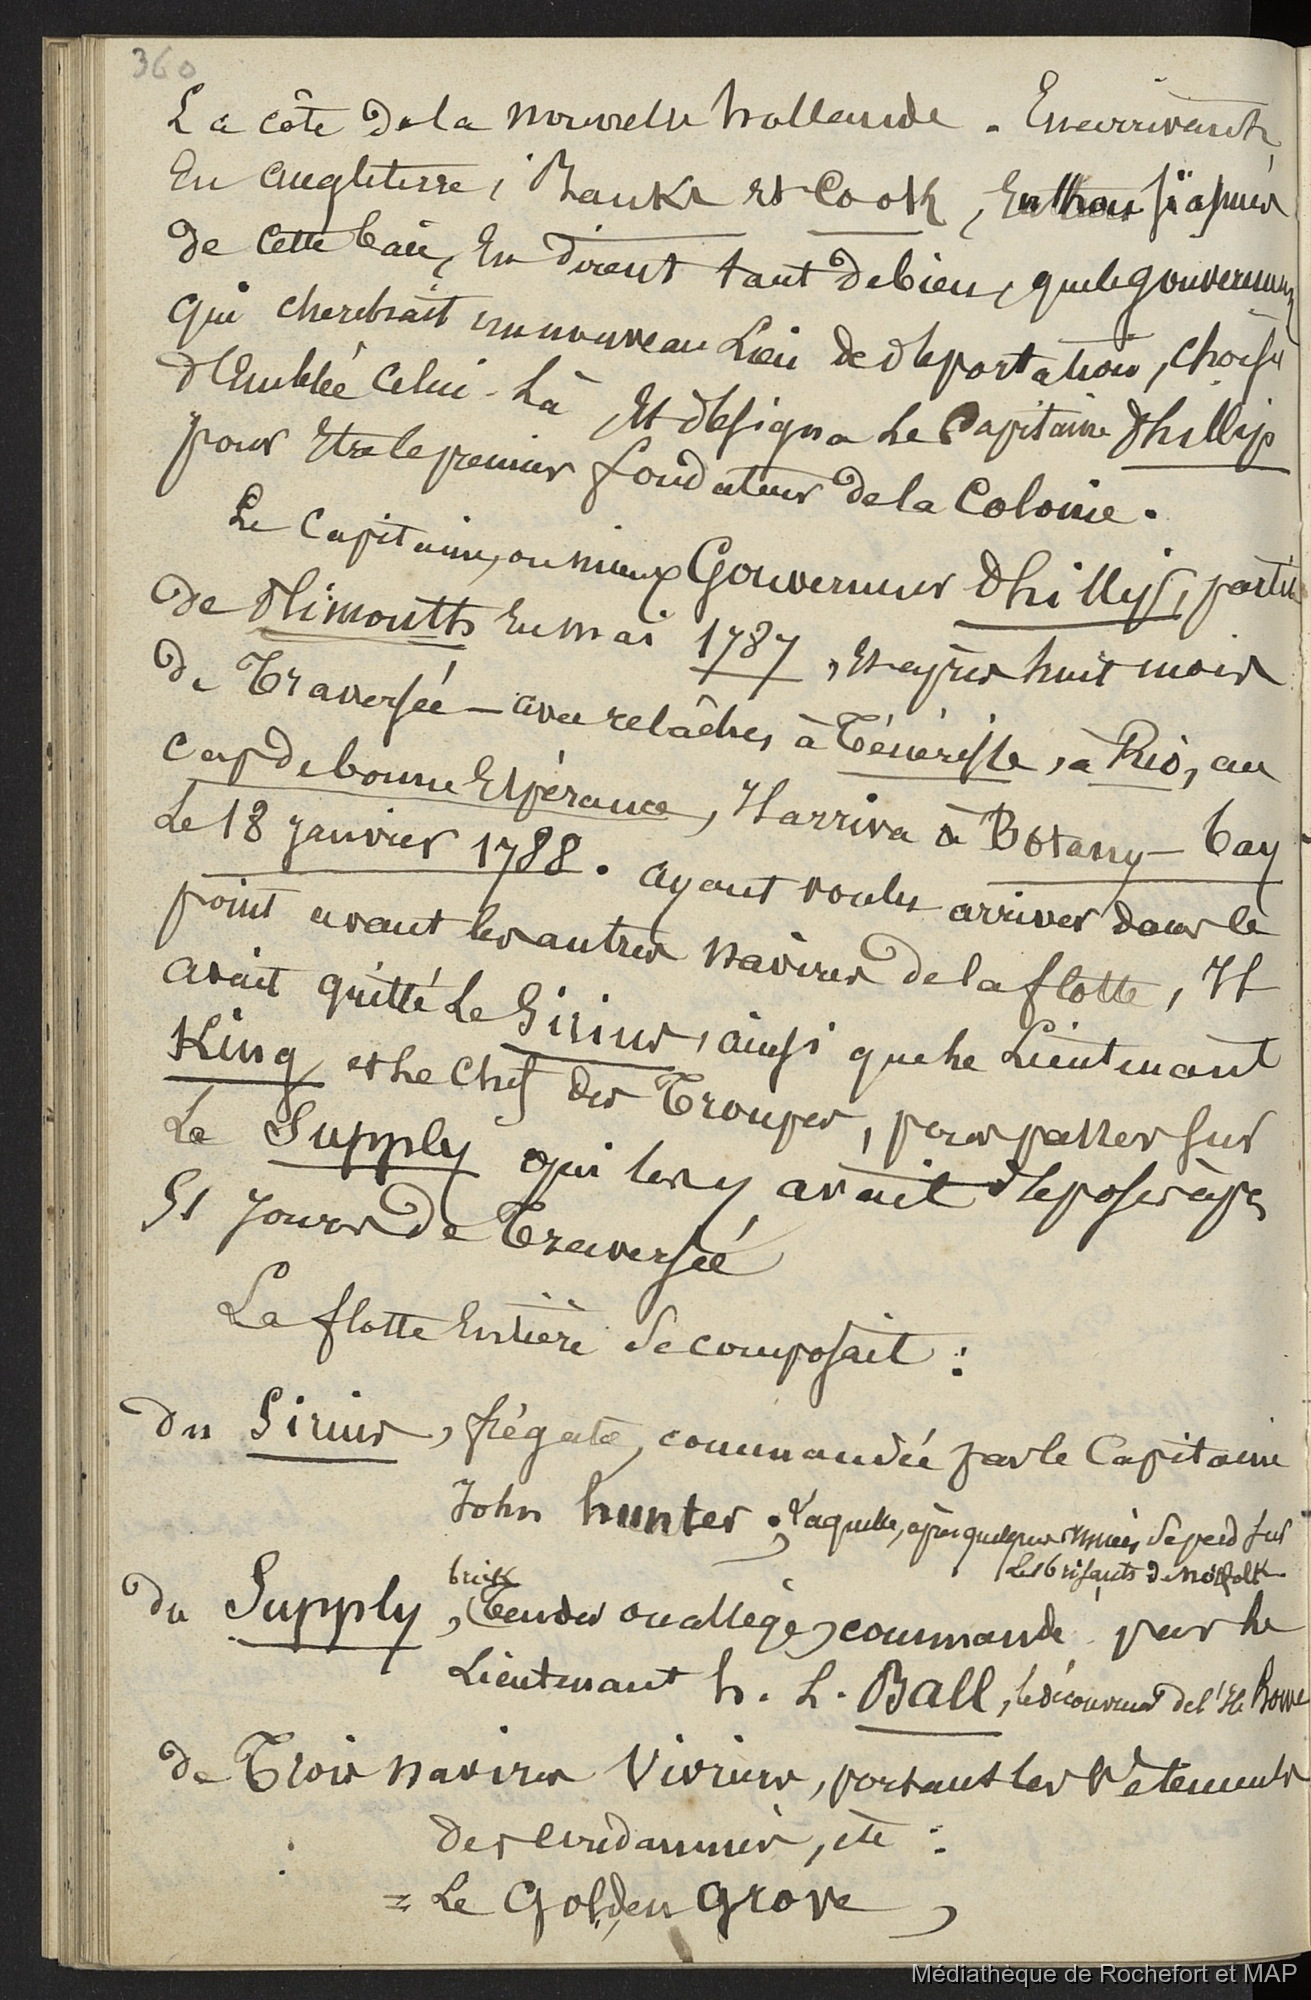 360
La côte de la nouvelle hollande. En arrivant,
En Angleterre, Banks et Cook,
de cette baie, En dirent tant de bien, que le gouvernem
qui cherchait un nouveau Lieu de déportation, choisit
d'Emblée celui-là, Et désigna Le Capitaine Phillip
pour Etre le premier fondateur de la Colonie.
Le Capitaine, ou mieux Gouverneur Phillip, partit
de Plimouth En mai 1787, Et après huit mois
de Traversée — avec relâches à Ténériffe, à Rio, au
Cap de bonne Espérance, Il arriva à Botany-bay
Le 18 janvier 1788. ayant voulu arriver dans le
point avant les autres navires de la flotte, Il
avait quitté Le Sirius, ainsi que le Lieutenant
King, et Le Chef des Troupes, pour passer sur
Le Supply qui les y avait déposés après
51 Jours de Traversée
La flotte Entière Se composait :
du Sirius, frégate, commandée par le Capitaine
John hunter ; Laquelle, après quelques mois, Se perd sur
Les brisants de norfolk
brick
du Supply, (Tender ou allège) commandé par le
Lieutenant h. L. Ball, le découvreur de l'Ile howe
de Trois navires Vivriers, portant les Vêtements
des condamnés, etc :
= Le Golden grove,
Médiathèque de Rochefort et MAP